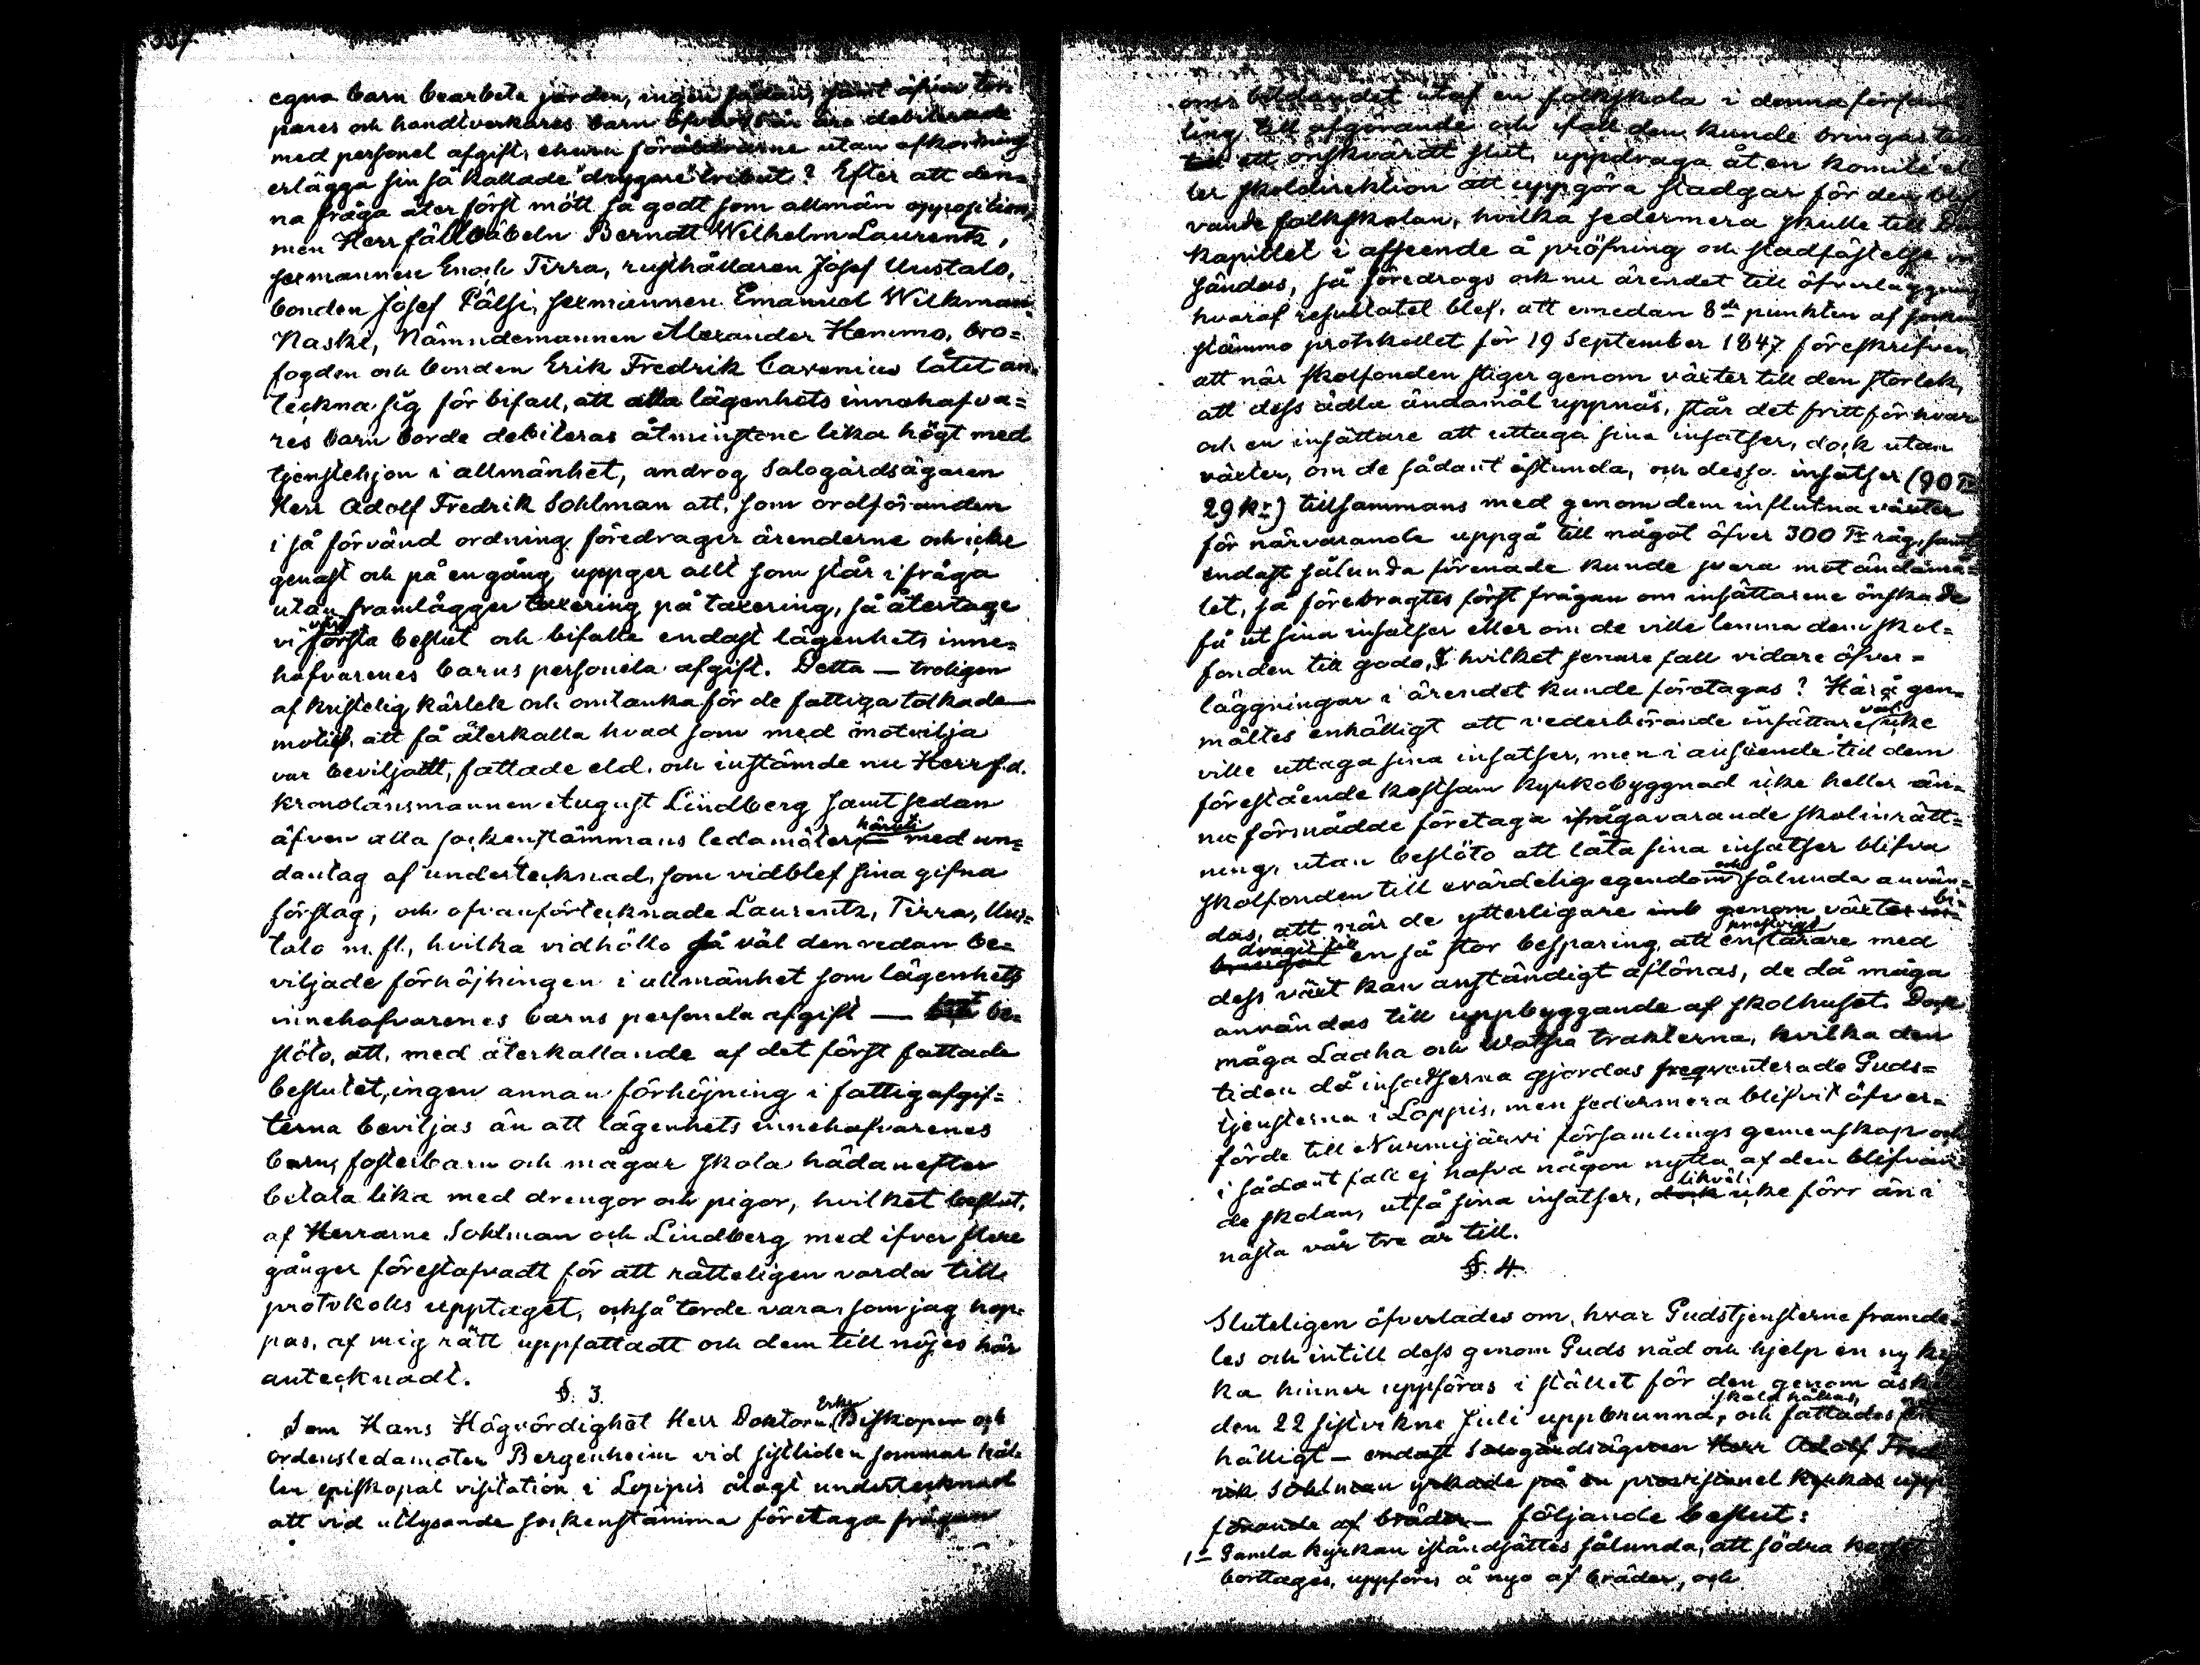 egna barn bearbeta jorden, ingen sådan, samt äfven tor¬
pares och handtverkares barn äfven äro debiterade
med personel afgift, ehuru föräldrarne utan afkortning
erlägga sin så kallade "drygare tribut"? Efter att den¬
na fråga åter först mött så godt som allmän opposition,
men Herr fältväbeln Berndt Wilhelm Laurentz,
sexmannen Enoch Tirra, rusthållaren Josef Uustalo,
bonden Josef Pälsi, sexmannen Emanuel Wilkman
Naski, Nämndemannen Alexander Hemmo, bro¬
fogden och bonden Erik Fredrik Cavenius låtit an¬
teckna sig för bifall, att alla lägenhets innehafva¬
res barn borde debiteras åtminstone lika högt med
tjenstehjon i allmänhet, androg Salogårdsägaren
Herr Adolf Fredrik Sohlman att, som ordföranden
i så förvänd ordning föredrager ärenderne och icke
genast och på en gång uppger allt som står i fråga
utan framlägger taxering på taxering, så återtage
vi vårt första beslut och bifalle endast lägenhets inne¬
hafvarenes barns personela afgift. Detta — troligen
af kristelig kärlek och omtanka för de fattiga tolkade —
motif, att få återkalla hvad som med motvilja
var beviljadt, fattade eld, och instämde nu Herr f.d.
kronolänsmannen August Lindberg samt sedan
äfven alla sockenstämmans ledamöter häruti med un¬
dantag af undertecknad, som vidblef sina gifna
förslag, och ofvanförtecknade Laurentz, Tirra, Uus¬
talo m.fl., hvilka vidhöllo så väl den redan be¬
viljade förhöjningen i allmänhet som lägenhets
innehafvarenes barns personela afgift — be¬
slöto, att, med återkallande af det först fattade
beslutet, ingen annan förhöjning i fattigafgif¬
terna beviljas än att lägenhets innehafvarenes
barn, fosterbarn och mågar skola hädanefter
betala lika med drengar och pigor, hvilket beslut,
af Herrarne Sohlman och Lindberg med ifver flere
gånger förestafvadt för att rätteligen varda till
protokolls upptaget, också torde vara, som jag hop¬
pas, af mig rätt uppfattadt och dem till nöjes här
antecknadt.
§. 3.
Som Hans Högvördighet Herr Doktorn, Erke Biskopen och
ordensledamoten Bergenheim vid sistliden sommar håll¬
en episkopal visitation i Loppis ålagt undertecknad
att vid utlysande sockenstämma företaga frågan
om bildandet utaf en folkskola i denna försam¬
ling till afgörande och ifall den kunde bringas till
ett önskvärdt slut, uppdraga åt en komité el¬
ler skoldirektion att uppgöra stadgar för den blif¬
vande folkskolan, hvilka sedermera skulle till Dom
kapitlet i afseende å pröfning och stadfästelse in
sändas, så föredrogs ock nu ärendet till öfverläggning
hvaraf resultatet blef, att emedan 8de punkten af socken
stämmo protokollet för 19 September 1847 föreskrifver
att när skolfonden stiger genom växter till den storlek,
att dess ädla ändamål uppnås, står det fritt för hvar
och en insättare att uttaga sina insatser, dock utan
växter, om de sådant åstunda, och dessa insatser (90 Tr
29 kr) tillsammans med genom dem influtna växter
för närvarande uppgå till något öfver 300 Tr råg, samt
endast sålunda förenade kunde svara mot ändamå¬
let, så förebragtes först frågan om insättarene önskade
få ut sina insatser eller om de ville lemna dem skol¬
fonden till godo, I hvilket senare fall vidare öfver¬
läggningar i ärendet kunde företagas? Härå gen¬
mältes enhälligt att vederbörande insättare väl icke
ville uttaga sina insatser, men i anseende till dem
förestående kostsam kyrkobyggnad icke heller än¬
nu förmådde företaga ifrågavarande skolinrätt¬
ning, utan beslöto att låta sina insatser blifva
skolfonden till evärdelig egendom och sålunda använ¬
das, att när de ytterligare genom växter bi¬
dragit till en så stor besparing, att en lärare med
dess växt kan anständigt aflönas, de då måga
användas till uppbyggande af skolhuset. Dock
måga Laaha och Watsia trakterna, hvilka den
tiden då insatserna gjordes freqventerade Guds¬
tjensterna i Loppis, men sedermera blifvit öfver¬
förde till Nurmijärvi församlings gemenskap och
i sådant fall ej hafva någon nytta af den blifvan¬
de skolan, utfå sina insatser, dock likväl icke förr än i
nästa vår tre år till.
§. 4.
Sluteligen öfverlades om, hvar Gudstjensterne framde¬
les och intill dess genom Guds nåd och hjelp en ny kyr
ka hinner uppföras i stället för den genom åska
den 22 sistvikne Juli uppbrunna, skola hållas, och fattades en
hälligt — endast Salogårdsägaren Herr Adolf Fred
rik Sohlman yrkade på en provisionel kyrkas upp¬
förande af bräder — följande beslut:
1o Gamla kyrkan iståndsättes sålunda, att södra korset
borttages, uppföres å nyo af bräder, och